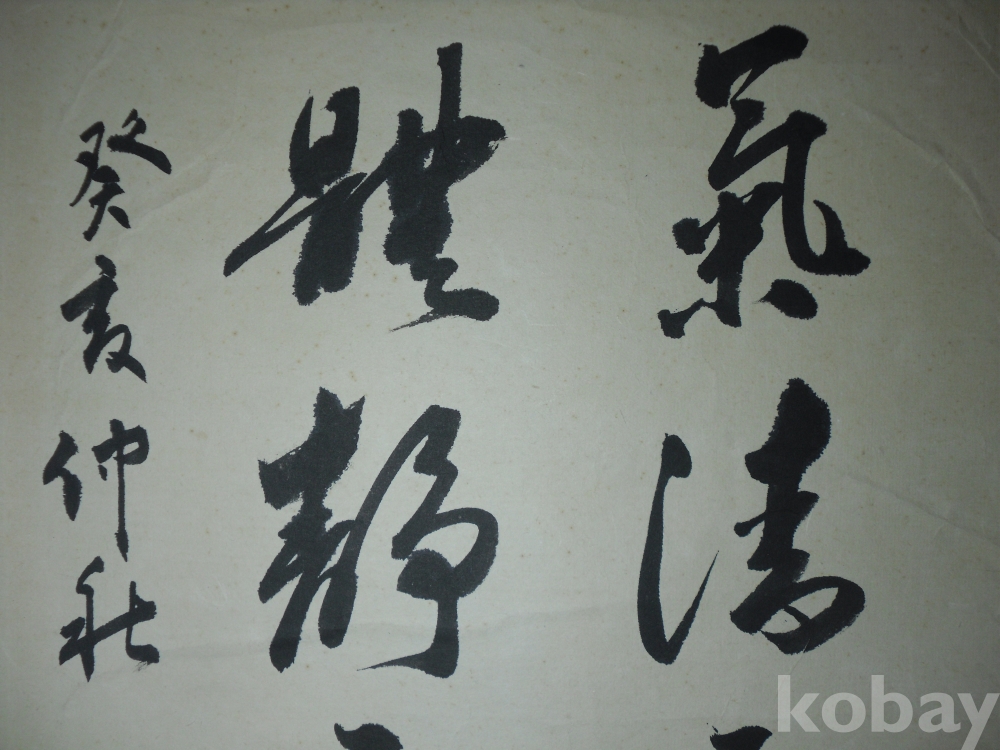 氣清
體靜
癸亥仲秋
kobay